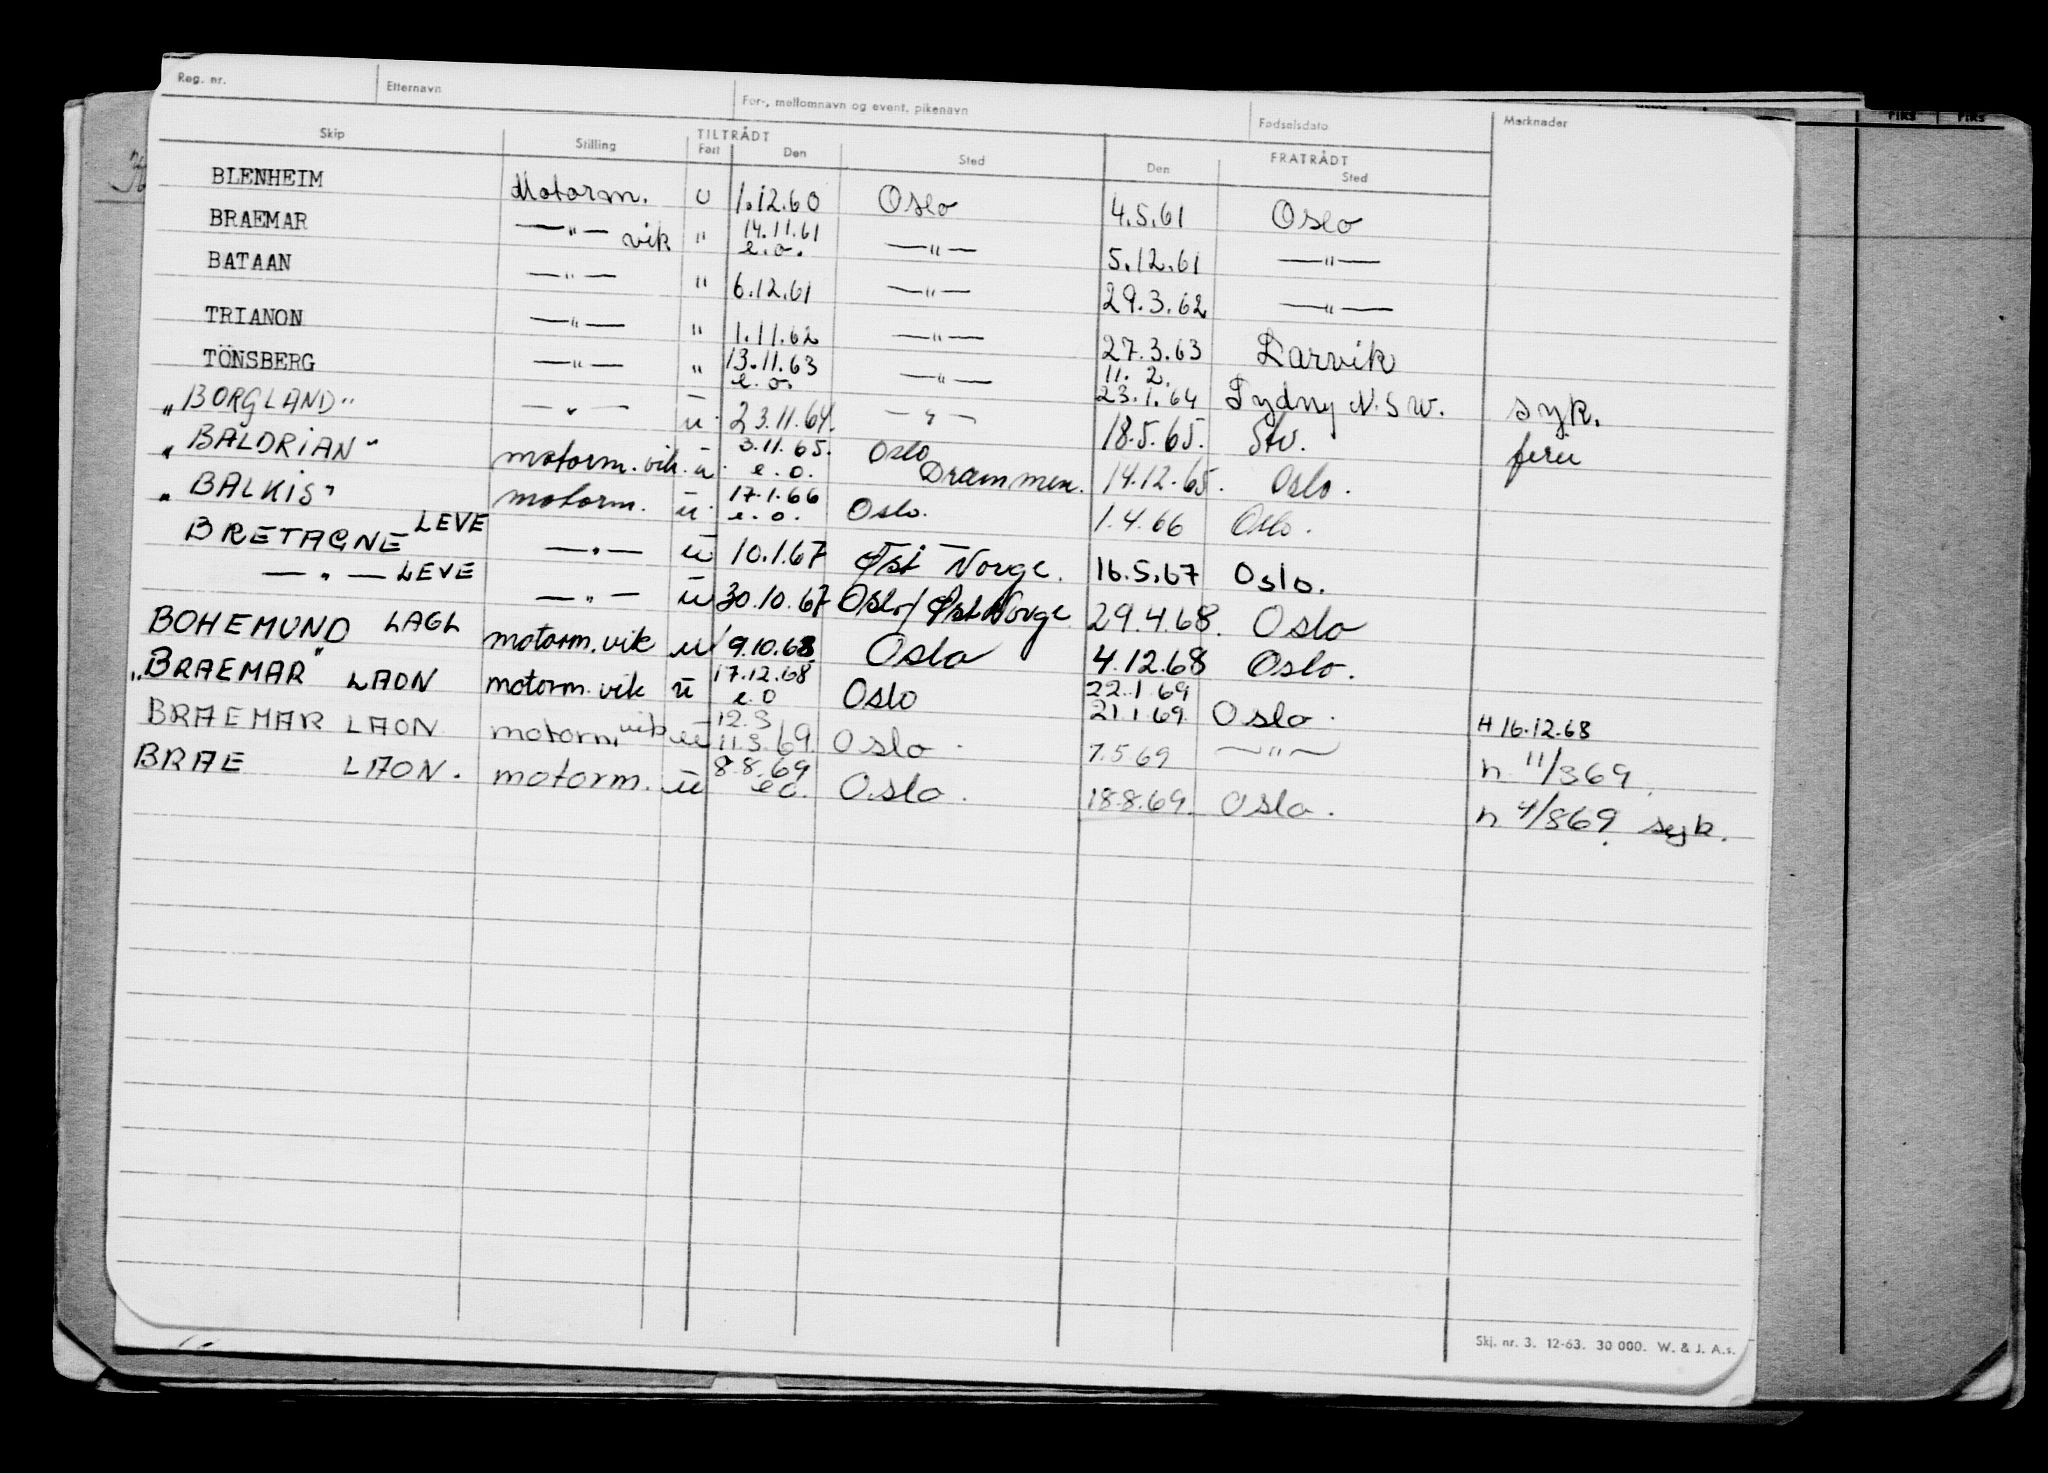 Reg. nr. Etternavn For-, mellomnavn og event. pikenavn Fødselsdato Merknader
Skip Stilling TILTRÅDT Fart Den Sted FRATRÅDT Den Sted
BLENHEIM Motorm. U 1.12.60 Oslo 4.5.61 Oslo
BRAEMAR —"— vik " 14.11.61 e.o. —"— 5.12.61 —"—
BATAAN —"— " 6.12.61 —"— 29.3.62 —"—
TRIANON —"— " 1.11.62 —"— 27.3.63 Larvik
TÖNSBERG —"— " 13.11.63 e.o. —"— 11. 2. 23.1.64 Sydny N.S.W. syk.
"BORGLAND" —"— u 23.11.64. —"— 18.5.65. Stv. ferie
"BALDRIAN" motorm. vik. u. 3.11.65. e.o. Oslo Drammen. 14.12.65. Oslo.
"BALKIS" motorm. u. 17.1.66 e.o. Oslo. 1.4.66 Oslo.
BRETAGNE LEVE —"— u 10.1.67 Øst-Norge. 16.5.67 Oslo.
—"— LEVE —"— u 30.10.67 Oslo/Øst Norge 29.4.68. Oslo
BOHEMUND LAGL motorm. vik u 9.10.68 Oslo 4.12.68 Oslo.
"BRAEMAR" LAON motorm. vik u 17.12.68 e.o Oslo 22.1.69 21.1.69. Oslo. H 16.12.68
BRAEMAR LAON motorm vik u 12.3 11.3.69. Oslo. 7.5.69 —"— h 11/369.
BRAE LAON. motorm. u 8.8.69 eo. Oslo. 18.8.69. Oslo. h 4/869. syk.
Skj. nr. 3. 12-63. 30 000. W. & J. A.s.